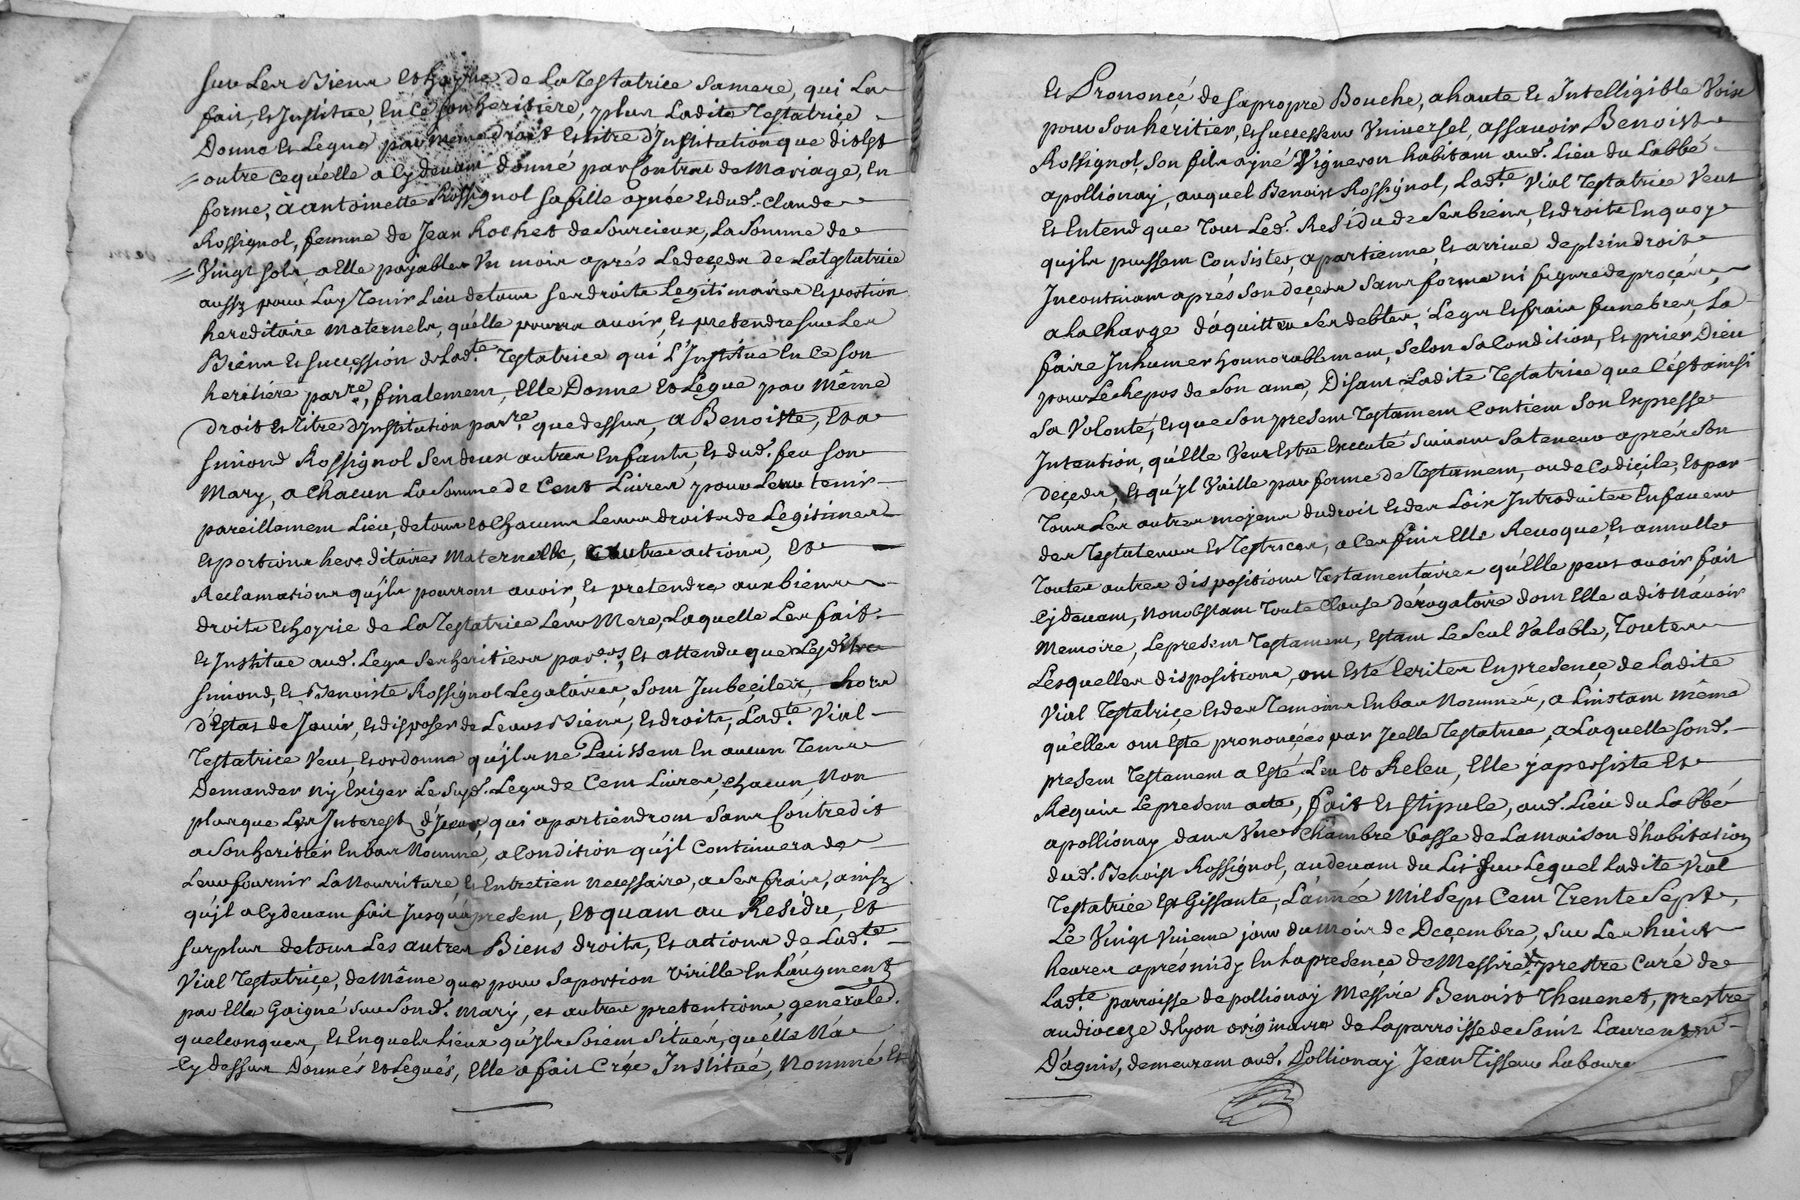 sur Les Biens et hoyrie de La Testatrice sa mere, qui La
fait, et Institue, En ce son heritiere, plus Ladite Testatrice
Donne et Legue par meme droit et titre d'Institution que dit est
outre ce quelle a Cy devant donné par Contrat de Mariage, En
forme, à antoinette Rossignol sa fille aynée et dud. Claude
Rossignol, femme de Jean Rochet de Sourcieux, La Somme de
Vingt sols a Elle payables Un mois aprés Le deçeds de La testatrice
aussy pour Luy Tenir Lieu de tous ses droits Legitimaires et portion
hereditaire maternels, qu'elle pourra avoir, Et pretendre sur Les
Biens et succession de Lad.te Testatrice qui L'Institue En Ce son
heritiére par.re, finalement, Elle Donne et Legue par Même
droit et Titre d'Institution par.re que dessus, a Benoiste, Et a
Simond Rossignol ses deux autres Enfants, et dud. feu son
Mary, a Chacun La Somme de Cent Livres pour Leur tenir
pareillement Lieu, de tous et Chacuns Leurs droits de Legitimes
et portions hereditaires Maternelle, et autres actions, Et
Reclamations qu'jls pourront avoir, Et pretendre aux biens
droits et hoyrie de La Testatrice Leur Mere, Laquelle Les fait
et Institue aud. Legs ses heritiers par.ers, Et attendu que Lesdits
Simond, Et Benoiste Rossignol Legataires, sont Jmbeciles, hors
d'Estat de Jouir, et disposer de Leurs Biens, Et droits, Lad.te Vial
Testatrice Veut, Et ordonne qu'jls ne Puissent En aucun Tems
Demander ny Exiger Le Susd. Legs de Cent Livres, chacun, Non
plus que Les Interest d'Jceux, qui apartiendront Sans Contredit
a Son heritier En bas Nommé, a Condition qu'jl Continuera de
Leur fournir La Nourriture, Et Entretien Necessaire, a Ses frais, ainsy
qu'jl a Cy devant fait Jusqu'a present, Et quant au Residu, Et
surplus de tous Les autres Biens droits, Et actions de Lad.te
Vial Testatrice, de Même que pour Sa portion Virille En L'augment
par Elle Gaigné sur Sond. Mary, et autres pretentions generaled.
quelconques, Et En quels Lieux qu'jls Soient Situés, quelle N'a
Cy dessus Donnés et Legués, Elle a fait Créé Institué, Nommé Et
Et Prononcé de sa propre Bouche, a haute Et Intelligible Voix
pour Son heritier, Et successeur Vniversel, assavoir Benoist
Rossignol, Son fils ayné Vigneron habitant aud. Lieu du Labbé
apollionay, auquel Benoist Rossignol, Lad.te Vial Testatrice Veut
Et Entend que Tout Led. Residu de Ses biens, Et droits En quoy
qu'jls puissent Consister, apartienne, Et arrive de plein droit
Incontinant aprés Son deçeds Sans forme ni figure de proçés,
a La Charge d'aquitter Ses debtes, Legs et frais funebres, La
faire Inhumer honnorablement, Selon Sa Condition, Et prier Dieu
pour Le Repos de Son ame, Disant Ladite Testatrice que C'est ainsi
Sa Volonté, Et que Son present Testament Contient Son Expresse
Intention, qu'Elle Veut Estre Executé Suivant Sa teneur aprés Son
deçeds, Et qu'jl Vaille par forme de Testament, ou de Codiçile, Et par
Tous Les autres moyens du droit Et des Loix Introduites En faveur
des Testateurs Et Testrices, a Ces fins Elle Revoque, Et annulle
Toutes autres dispositions Testamentaires qu'Elle peut avoir fait
Cydevant, Nonobstant Toute Clause dérogatoire dont Elle a dit N'avoir
Memoire, Le present Testament, Estant Le Seul Valable, Toutes
Lesquelles dispositions, ont Esté Ecrites En presençe de Ladite
Vial Testatrice Et des Temoins En bas Nommés, a L'instant Même
qu'elles ont Esté prononcées par Jcelle Testatrice, a Laquelle Sond.
present Testament a Esté Leu Et Releu, Elle y a persisté Et
Requis Le present acte, fait Et Stipule, aud. Lieu du Labbé
apollionay dans Vne Chambre basse de La maison d'habitation
dud. Benoist Rossignol, au devant du Lit Sur Lequel Ladite Vial
Testatrice Est Gissante, L'année Mil Sept Cent Trente Sept,
Le Vingt Vnieme jour du Mois de Deçembre, Sur Les huit
heures aprés midy En La presençe de Messire prestre Curé de
Lad.te parroisse de pollionay Messire Benoist Thevenet, prestre
au dioceze de Lyon originaire de La parroisse de Saint Laurent
D'agnis, demeurant aud. Pollionay Jean Tisseur Laboure